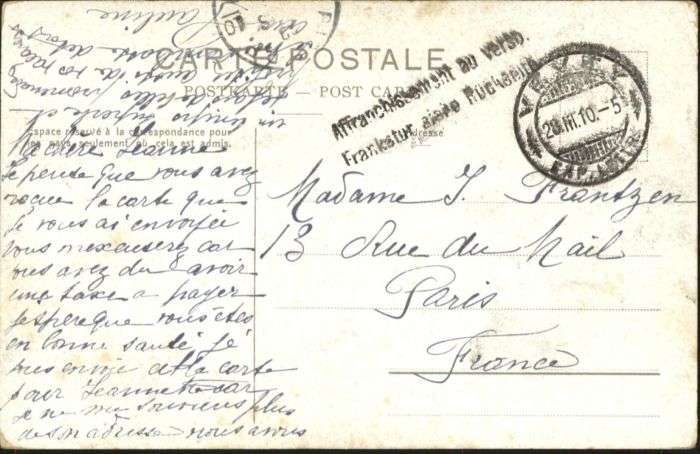 CARTE POSTALE
POSTKARTE — POST CARD
Affranchissement au verso.
Frankatur siehe Rückseite
VEVEY
28.III.10.-5
EXP. LETTR.
Espace réservé à la correspondance pour
les pays seulement où cela est admis.
Adresse
Ma chère Jeanne
Je pense que vous avez
reçue la carte que
je vous ai envoyée
vous mexcuserez car
vous avez du avoir
une taxe a payer
Jespere que vous etes
en bonne santé je
vous envoie cette carte
pour Jeannette car
je ne me souviens plus
de son adresse nous avons
Pauline
Madame J. Frantzen
13 Rue du Mail
Paris
France